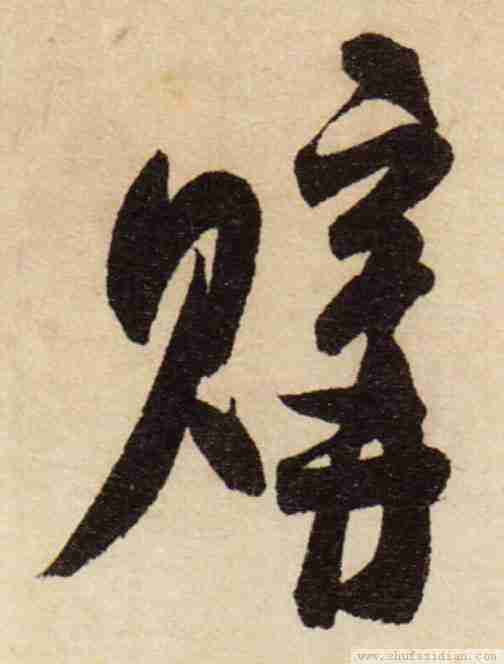 購
www.shufazidian.com